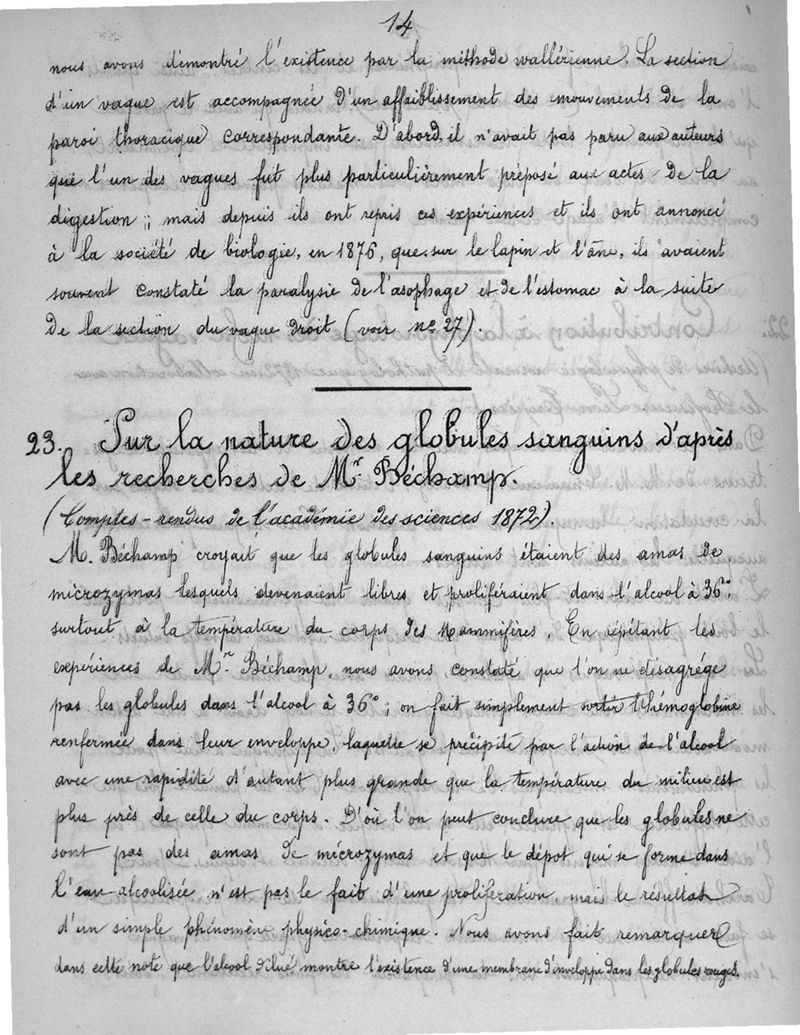 14
nous avons démontré l'existence par la méthode wallérienne. La section
d'un vague est accompagnée d'un affaiblissement des mouvements de la
paroi thoracique correspondante. D'abord, il n'avait pas paru aux auteurs
que l'un des vagues fut plus particulièrement préposé aux actes de la
digestion ; mais depuis ils ont repris ces expériences et ils ont annoncé
à la société de biologie, en 1876, que sur le lapin et l'âne, ils avaient
souvent constaté la paralysie de l'œsophage et de l'estomac à la suite
de la section du vague droit (voir no 27).
23. Sur la nature des globules sanguins d'après
les recherches de Mr. Béchamp.
(Comptes-rendus de l'académie des sciences 1872).
M. Béchamp croyait que les globules sanguins étaient des amas de
microzymas lesquels devenaient libres et proliféraient dans l'alcool à 36°,
surtout à la température du corps des Mammifères. En répétant les
expériences de Mr. Béchamp, nous avons constaté que l'on ne désagrége
pas les globules dans l'alcool à 36° ; on fait simplement sortir l'hémoglobine
renfermée dans leur enveloppe, laquelle se précipite par l'action de l'alcool
avec une rapidité d'autant plus grande que la température du milieu est
plus près de celle du corps. D'où l'on peut conclure que les globules ne
sont pas des amas de microzymas et que le dépot qui se forme dans
l'eau-alcoolisée n'est pas le fait d'une prolifération, mais le résultat
d'un simple phénomène physico-chimique. Nous avons fait remarquer
dans cette note que l'alcool dilué montre l'existence d'une membrane d'enveloppe dans les globules rouges.